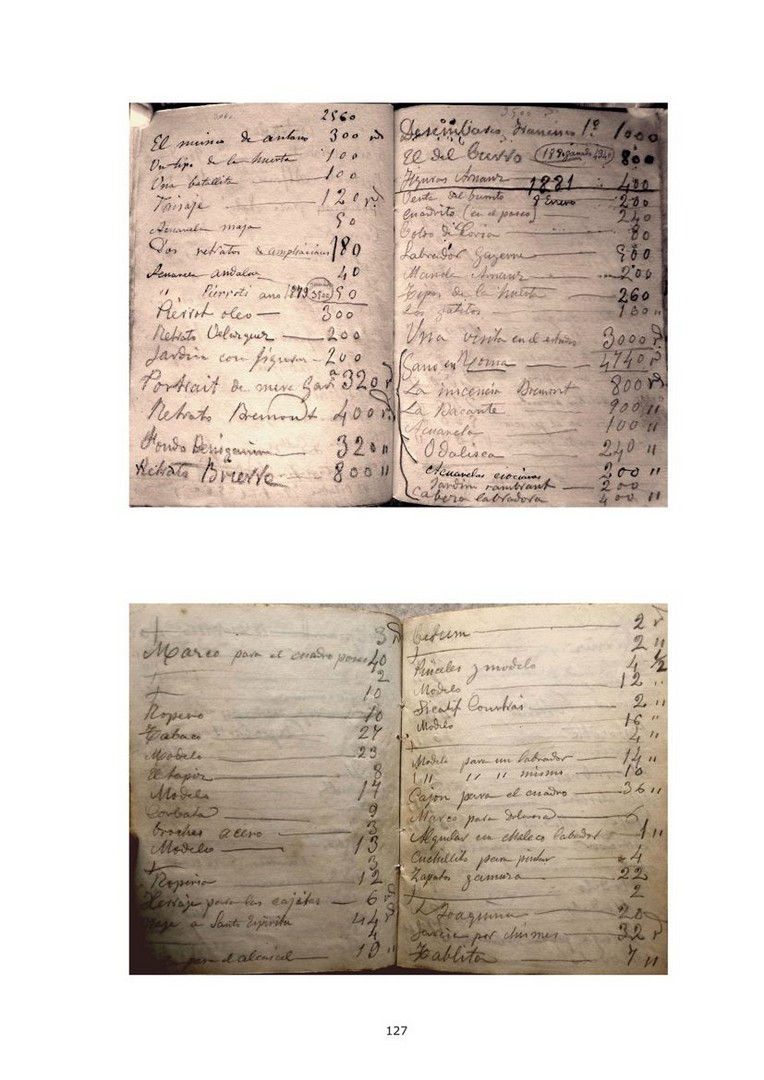 2560
El músico de antaño 300 rs
Un tipo de la huerta 100
Una batallita 100
Paisaje 120 rs
Acuarela maja 50
Dos retratos & ampliaciones 180
Acuarela andaluz 40
" Pierroti ano 1879 3500 50
Pierrot oleo — 300
Retrato Velazquez — 200
Jardin con figuras — 200
Portrait de mere 320 r
Retrato Bremont 400 r
Fondo Beniganim 320 "
Retrato 800 "
Desembarco Francisco 1º 1000
El del burro 800
Figuras Arnauz 1881 400
Venta del burrito 8 Enero 200
Cuadrito (en el paseo) 240
80
Labrador 500
Manola Arnauz 200
Tipos de la huerta 260
Los gatitos 130 "
Una visita en el estudio 3000 r
Gano en Roma 4740 r
La inocencia Bremont 800 r
La Bacante 900 "
Acuarela 100 "
Odalisca 240 "
Acuarelas 200 "
Jardin rambrant 200
Cabeza labradora 400 "
3 r
Marco para el cuadro 40
2
10
Ropero 10
Tabaco 27
Modelo 23
8
Modelo 14
Corbata 9
Brochas acero 3
Modelo 13
3
Roperia 12
Herraje para las cajitas — 6
Viaje a Santo Espiritu 44
4
para el alcacil 19 "
2 r
2 "
Pinceles y modelo 4 1/2
Modelo 12 "
Sicatif Courtrai 2 "
Modelo 16 "
4 "
Modelo para un labrador 14 "
" " " mismo 10
Cajon para el cuadro 36 "
Marco para dolorosa 6
Alquilar un chaleco labrador 1 "
Cuchillito para pintar 4
Zapatos 22
2
Joaquina 20
Garcia por chismes 32 r
Tablita 7 "
127